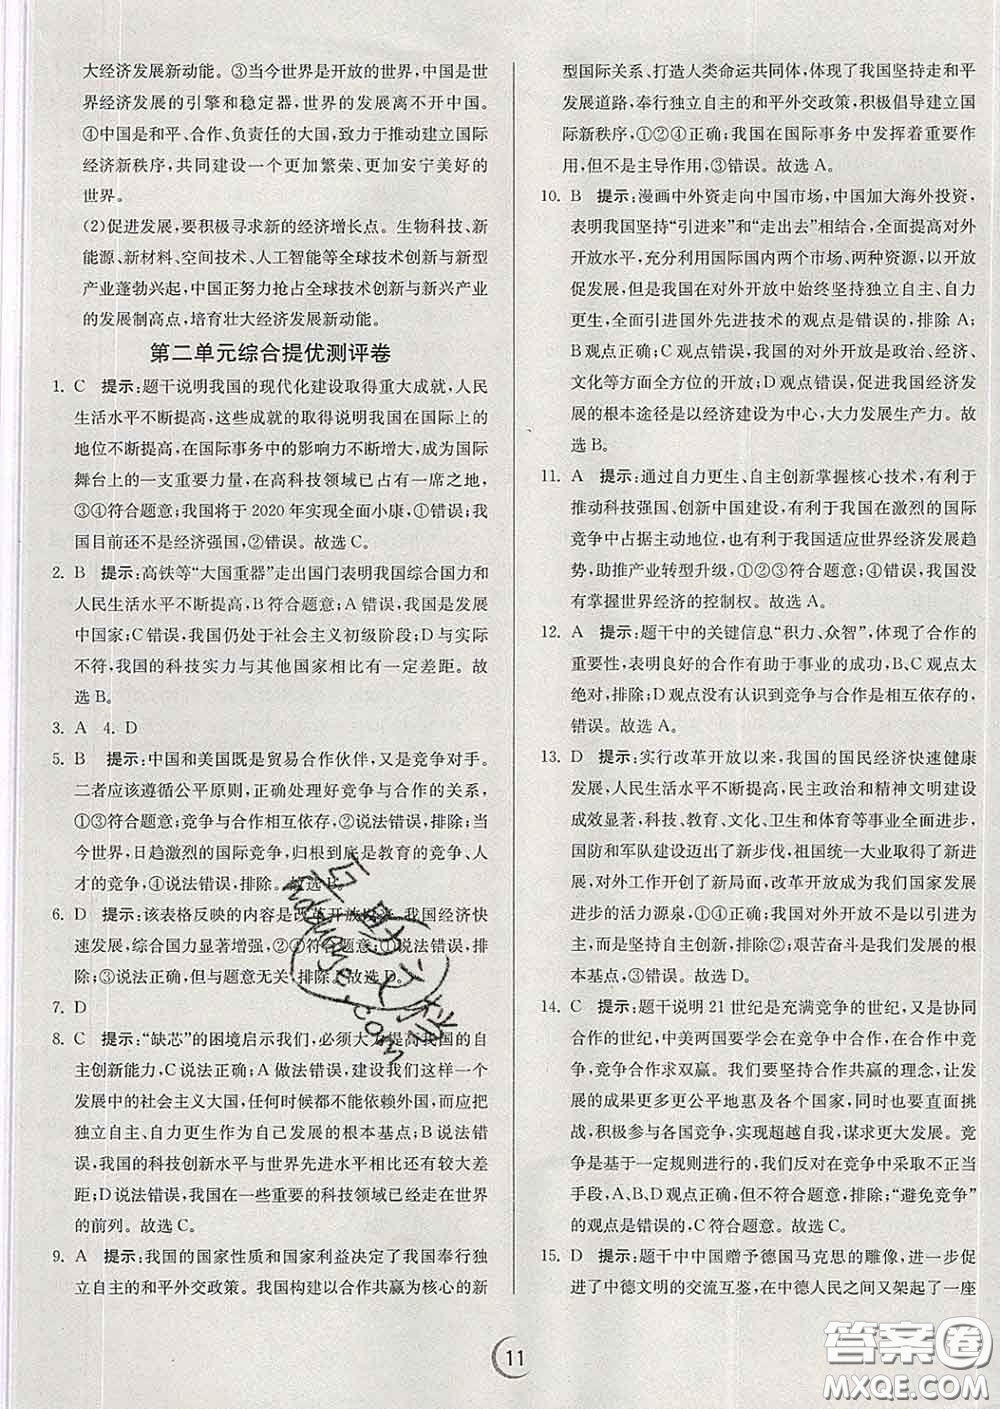 大经济发展新动能。③当今世界是开放的世界,中国是世
界经济发展的引擎和稳定器,世界的发展离不开中国。
④中国是和平、合作、负责任的大国,致力于推动建立国际
经济新秩序,共同建设一个更加繁荣、更加安宁美好的
世界。
(2)促进发展,要积极寻求新的经济增长点。生物科技、新
能源、新材料、空间技术、人工智能等全球技术创新与新型
产业蓬勃兴起,中国正努力抢占全球技术创新与新兴产业
的发展制高点,培育壮大经济发展新动能。
第二单元综合提优测评卷
1. C 提示:题干说明我国的现代化建设取得重大成就,人民
生活水平不断提高,这些成就的取得说明我国在国际上的
地位不断提高,在国际事务中的影响力不断增大,成为国际
舞台上的一支重要力量;在高科技领域已占有一席之地,
③④符合题意;我国将于2020年实现全面小康,①错误;我
国目前还不是经济强国,②错误。故选C。
2. B 提示:高铁等“大国重器”走出国门表明我国综合国力和
人民生活水平不断提高,B符合题意;A错误,我国是发展
中国家;C错误,我国仍处于社会主义初级阶段;D与实际
不符,我国的科技实力与其他国家相比有一定差距。故
选B。
3. A 4. D
5. B 提示:中国和美国既是贸易合作伙伴,又是竞争对手。
二者应该遵循公平原则,正确处理好竞争与合作的关系,
①③符合题意;竞争与合作相互依存,②说法错误,排除;当
今世界,日趋激烈的国际竞争,归根到底是教育的竞争、人
才的竞争,④说法错误,排除。故选B。
6. D 提示:该表格反映的内容是改革开放以来,我国经济快
速发展,综合国力显著增强,②④符合题意;①说法错误,排
除;③说法正确,但与题意无关,排除。故选D。
7. D
8. C 提示:“缺芯”的困境启示我们,必须大力提高我国的自
主创新能力,C说法正确;A做法错误,我国作为一个
发展中的社会主义大国,任何时候都不能依赖外国,而应把
独立自主、自力更生作为自己发展的根本基点;B说法错
误,我国的科技创新水平与世界先进水平相比有较大差
距;D说法错误,我国在一些重要的科技领域已经走在世界
的前列。故选C。
9. A 提示:我国的国家性质和国家利益决定了我国奉行独
立自主的和平外交政策。我国构建以合作共赢为核心的新
型国际关系、打造人类命运共同体,体现了我国坚持走和平
发展道路,奉行独立自主的和平外交政策,积极倡导建立国
际新秩序,①②④正确;我国在国际事务中发挥着重要作
用,但不是主导作用,③错误。故选A。
10. B 提示:漫画中外资走向中国市场,中国加大海外投资,
表明我国坚持“引进来”和“走出去”相结合,全面提高对外
开放水平,充分利用国际国内两个市场、两种资源,以开放
促发展,但是我国在对外开放中始终坚持独立自主、自力
更生,不是以利用国外先进技术的观点错误,排除A;
B观点正确;C观点错误,我国的对外开放是政治、经济、
文化等方面全方位的开放;D观点错误,促进我国发展
的根本途径是以经济建设为中心,大力发展生产力。故
选B。
11. A 提示:通过自力更生、自主创新掌握核心技术,有利于
推动科技强国、创新中国建设,有利于我国在激烈的国际
竞争中占据主动地位,也有利于我国适应世界经济发展趋
势,助推产业转型升级,①②③符合题意;④错误,我国没
有掌握世界经济的控制权。故选A。
12. A 提示:题干中的关键信息“积力、众智”,体现了合作的
重要性,表明良好的合作有助于事业的成功,B、C观点太
绝对,排除;D观点没有认识到竞争与合作是相互依存的,
错误。故选A。
13. D 提示:实行改革开放以来,我国的国民经济快速健康
发展,人民生活水平不断提高,民主政治和精神文明建设
成效显著,科技、教育、文化、卫生和体育等事业全面进步,
国防和军队建设迈出了新步伐,祖国统一大业取得了新进
展,对外工作开创了新局面,改革开放成为我们国家发展
进步的活力源泉,①④正确;我国对外开放不是以引进为
主,而是坚持自主创新,排除②;艰苦奋斗是我们发展的根
本基点,③错误。故选D。
14. C 提示:题干说明21世纪是充满竞争的世纪,又是协同
合作的世纪,中美两国要学会在竞争中合作,在合作中竞
争,竞争以求双赢。我们要坚持合作共赢的理念,让发
展的成果更多更公平地惠及各个国家,同时也要直面挑
战,积极参与各国竞争,实现超越自我,谋求更大发展。竞
争是基于一定规则进行的,我们反对在竞争中采取不正当
手段,A、B、D做法可取,但不符合题意,排除;“避免竞争”
的观点是错误的,C符合题意。故选C。
15. D 提示:题干中中国赠予德国马克思的雕像,进一步促
进了中德文明的交流互鉴,在中德人民之间又架起了一座
11
答案圈
MXQE.COM